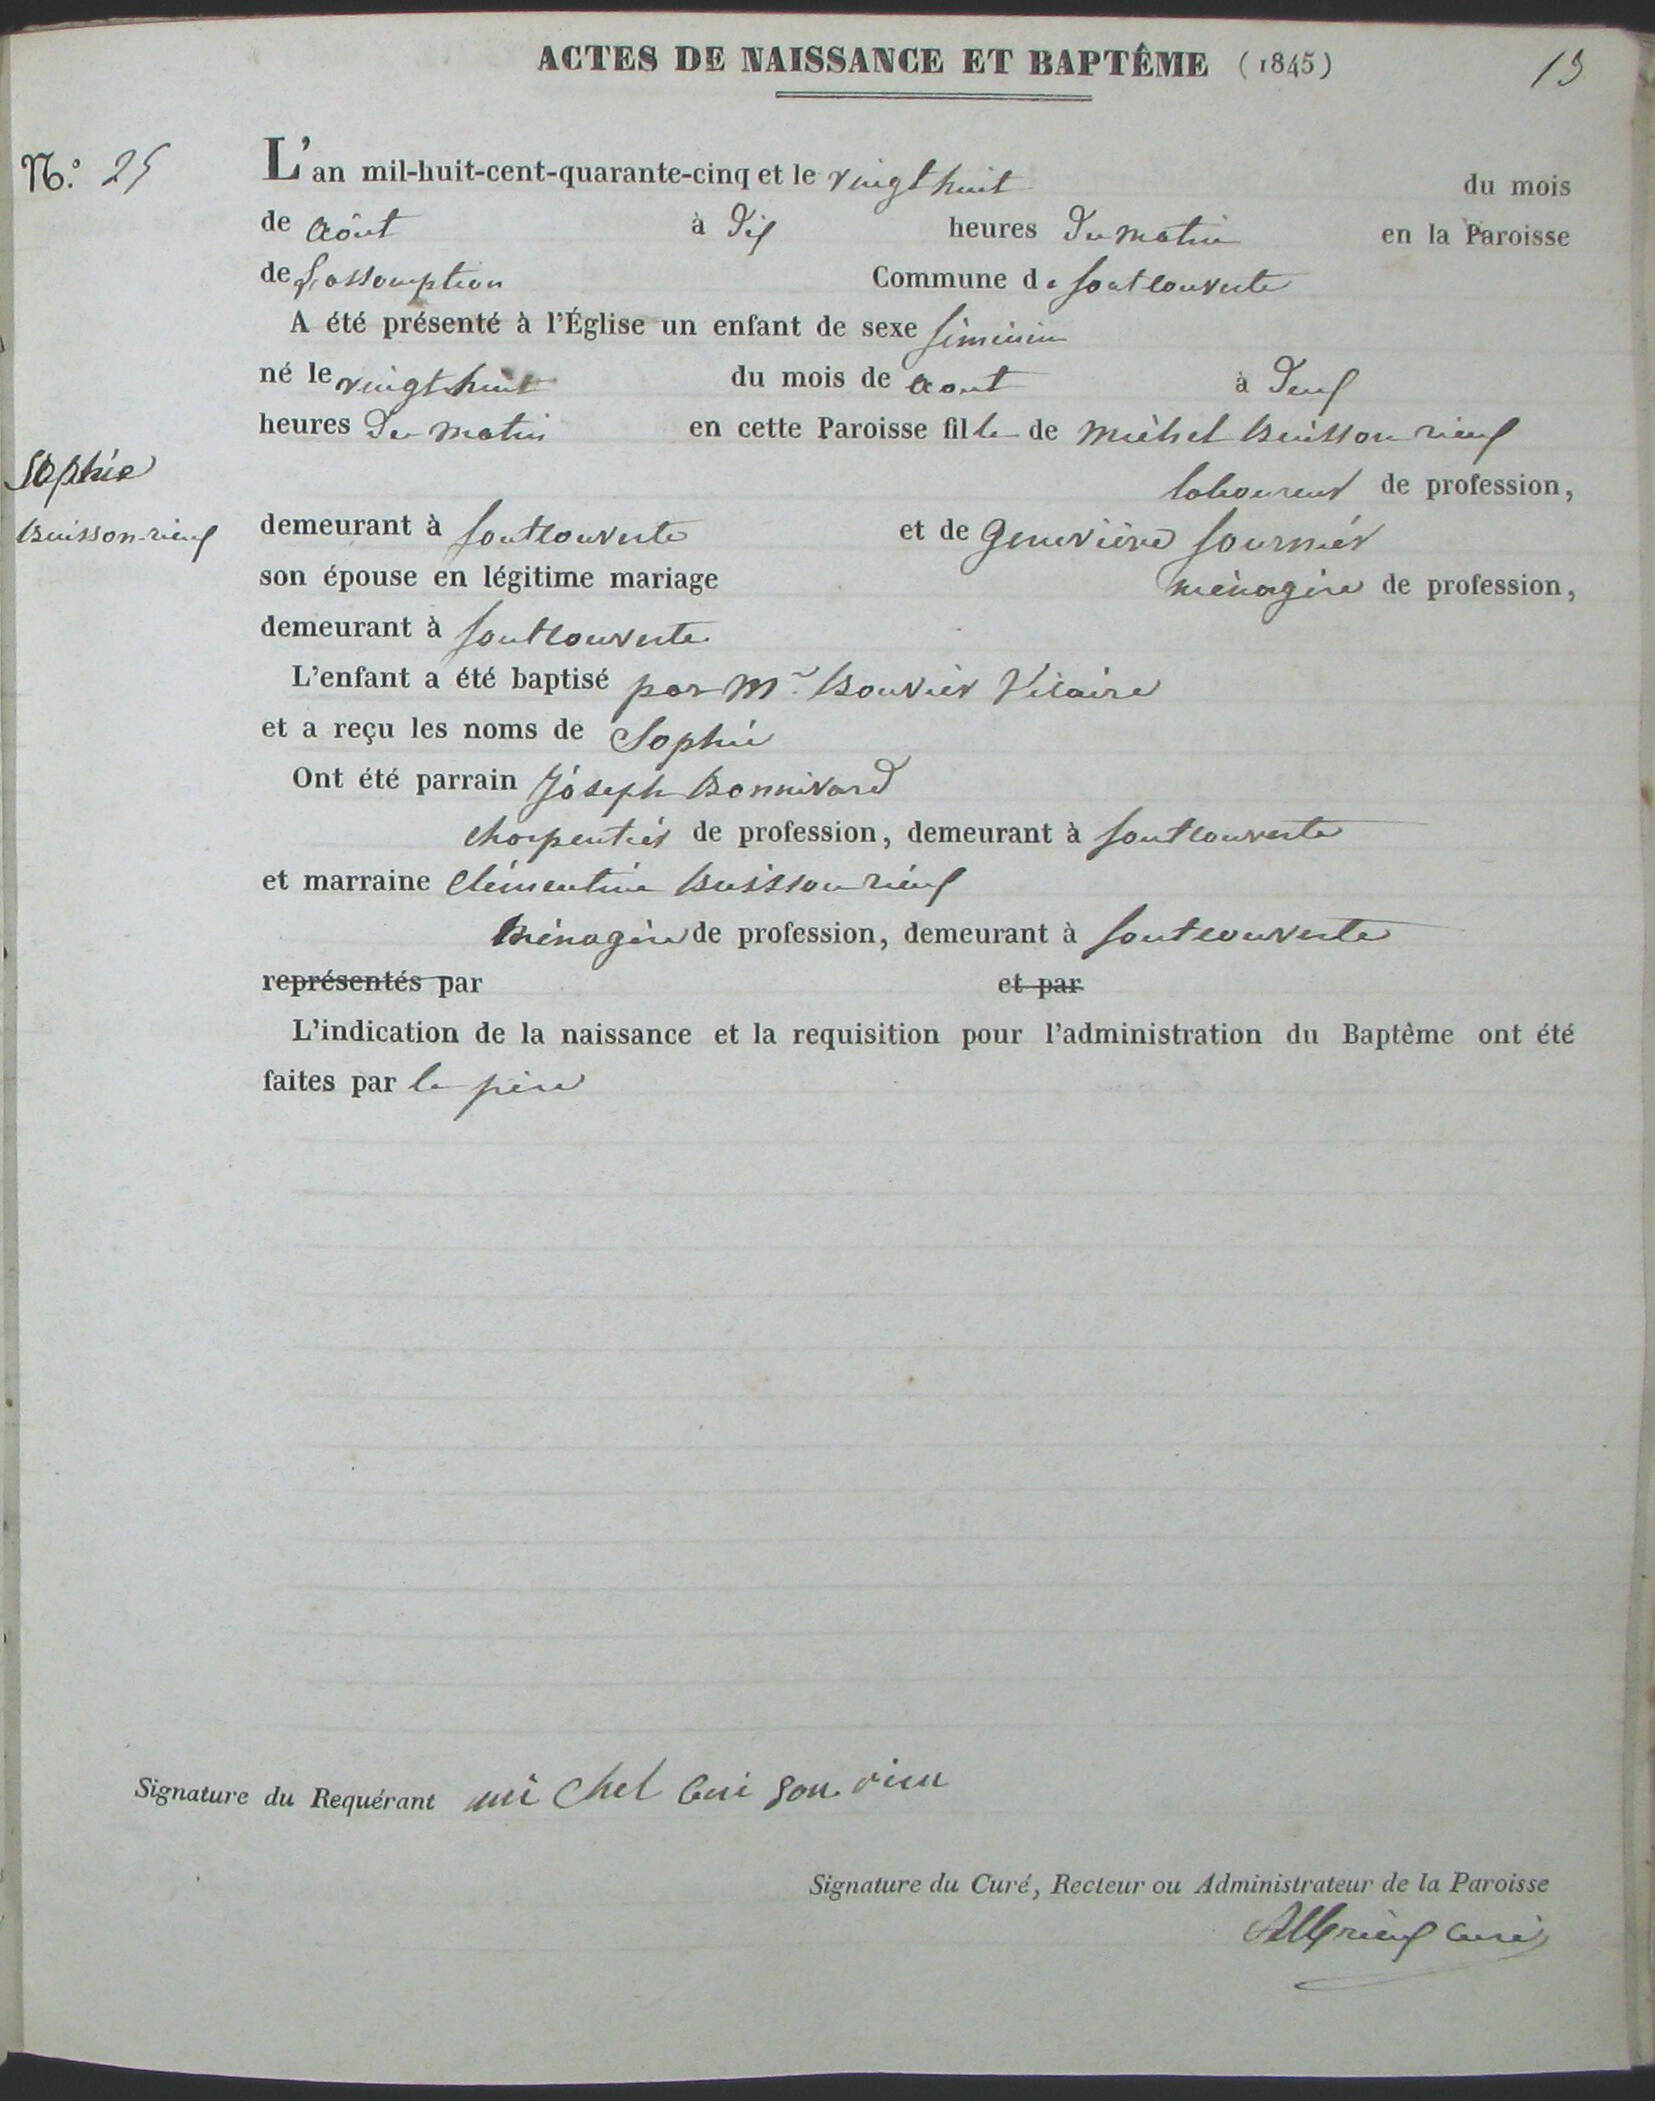 ACTES DE NAISSANCE ET BAPTÊME (1845)
13
N.º 25
L'an mil-huit-cent-quarante-cinq et le vingt huit du mois
de Aôut à Dix heures Du matin en la Paroisse
de L'assomption Commune de Fontcouverte
A été présenté à l'Église un enfant de sexe féminin
né le vingt huit du mois de Aout à Deux
heures Du matin en cette Paroisse fille de Michel Buisson rieux
laboureur de profession,
Sophie
Buisson-rieux
demeurant à Fontcouverte et de Geneviève Fournier
son épouse en légitime mariage ménagère de profession,
demeurant à Fontcouverte
L'enfant a été baptisé par Mr Bouvier Vicaire
et a reçu les noms de Sophie
Ont été parrain Joseph Bonnivard
charpentier de profession, demeurant à Fontcouverte
et marraine Clémentine Buisson rieux
Ménagère de profession, demeurant à Fontcouverte
représentés par et par
L'indication de la naissance et la requisition pour l'administration du Baptême ont été
faites par le père
Signature du Requérant mi chel bui son rieu
Signature du Curé, Recteur ou Administrateur de la Paroisse
Albrieux curé